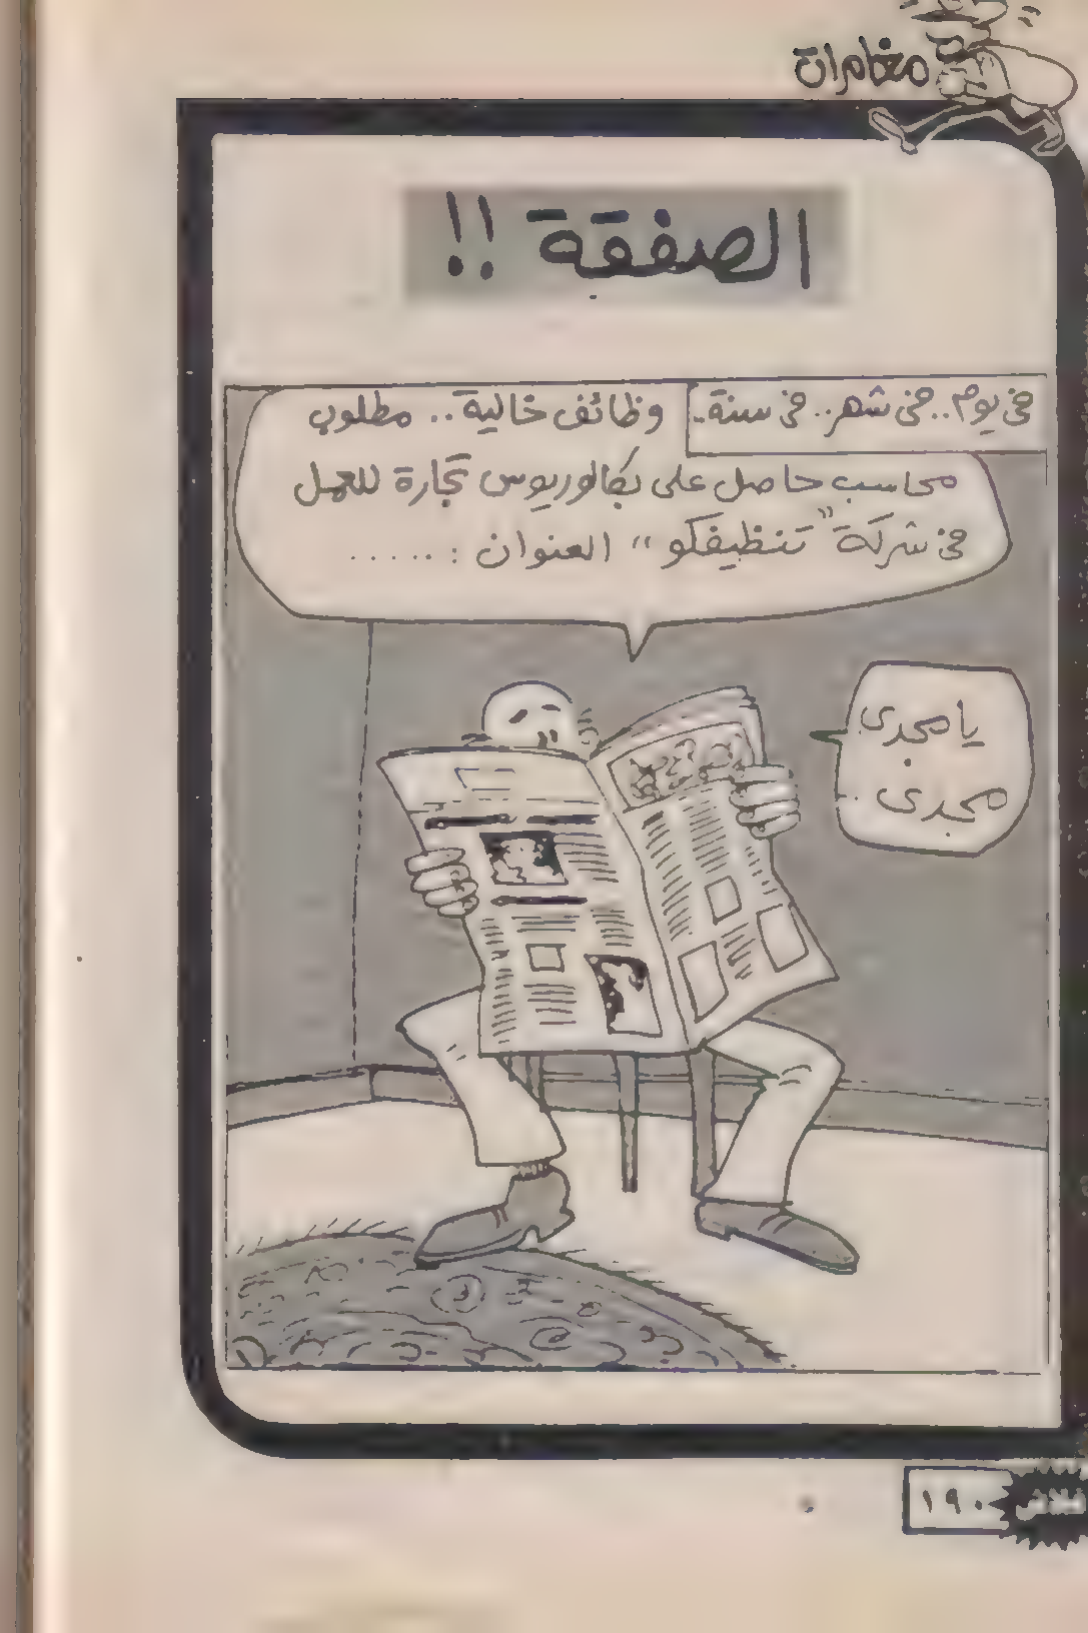 مغامرات
الصفقة !!
فى يوم.. فى شهر.. فى سنة..
وظائف خالية.. مطلوب
محاسب حاصل على بكالوريوس تجارة للعمل
فى شركة "تنظيفكو" العنوان : ......
يا مجدى
مجدى ..
١٩٠
فلاش